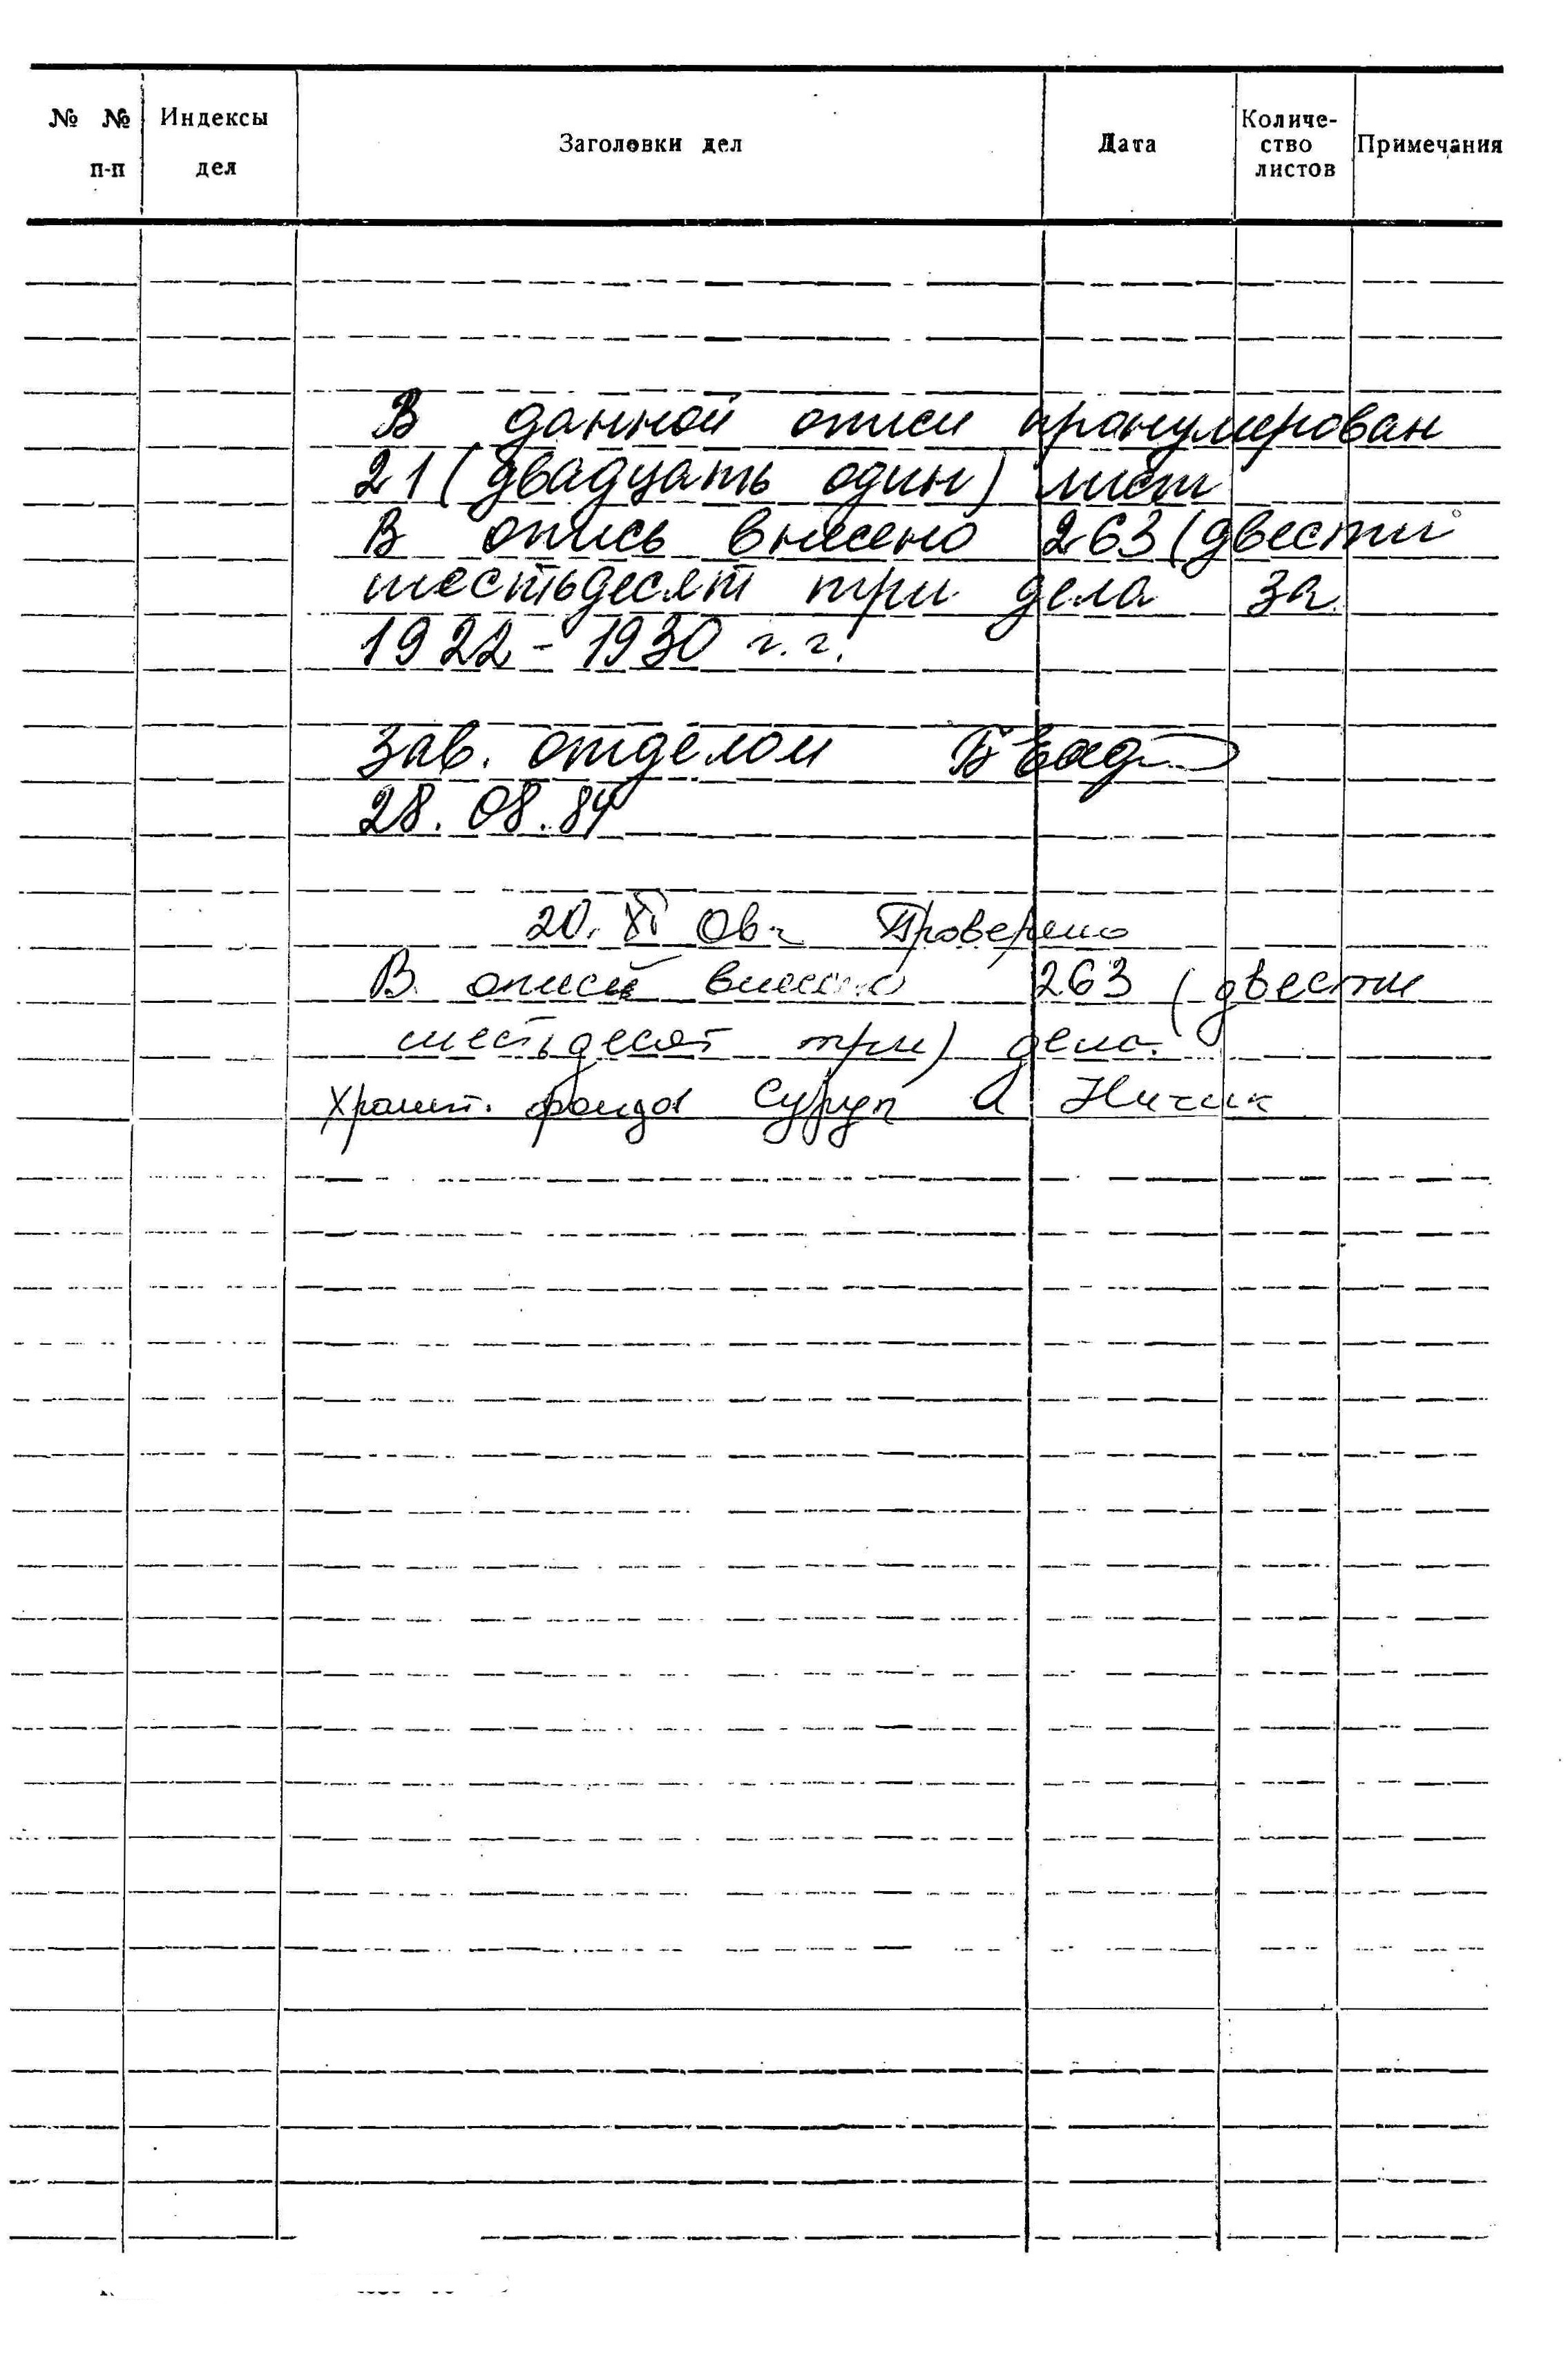 № № п-п
Индексы дел
Заголовки дел
Дата
Количе-
ство
листов
Примечания
В данной описи пронумерован
21 (двадцать один) лист
В опись внесено 263 (двести
шестьдесят три дела за
1922 - 1930 г.г.
Зав. отделом
28.08.84
20. XI 06г Проверено
В описи внесено 263 (двести
шестьдесят три) дела.
Хранит. фонда